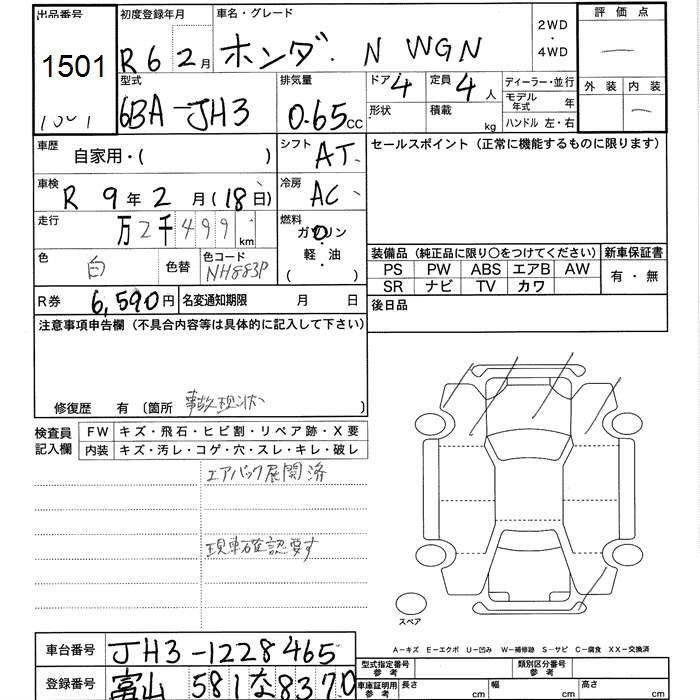 出品番号 初度登録年月 車名・グレード 2WD・4WD 評価点
1501 R6 2月 ホンダ N WGN
型式 排気量 ドア 4 定員 4人 ディーラー・並行 外装 内装
6BA-JH3 0.65cc 形状 積載 kg モデル年式 年
ハンドル 左・右
車歴 自家用・( ) シフト AT セールスポイント(正常に機能するものに限ります)
車検 R 9年2月(18日) 冷房 AC
走行 万2千499km 燃料 ガソリン
軽・油
( )
色 白 色替 色コード NH883P
装備品(純正品に限り○をつけてください) 新車保証書
PS PW ABS エアB AW 有・無
SR ナビ TV カワ
R券 6,590円 名変通知期限 月 日 後日品
注意事項申告欄(不具合内容等は具体的に記入して下さい)
修復歴 有〔箇所 事故現状 〕
検査員記入欄 FW キズ・飛石・ヒビ割・リペア跡・X要
内装 キズ・汚レ・コゲ・穴・スレ・キレ・破レ
エアバック展開済
現車確認要す
スペア
A-キズ E-エクボ U-凹み W-補修跡 S-サビ C-腐食 XX-交換済
車台番号 JH3-1228465
型式指定番号 参考 類別区分番号 参考
登録番号 富山 581な8370
車庫証明用参考 長さ cm 幅 cm 高さ cm